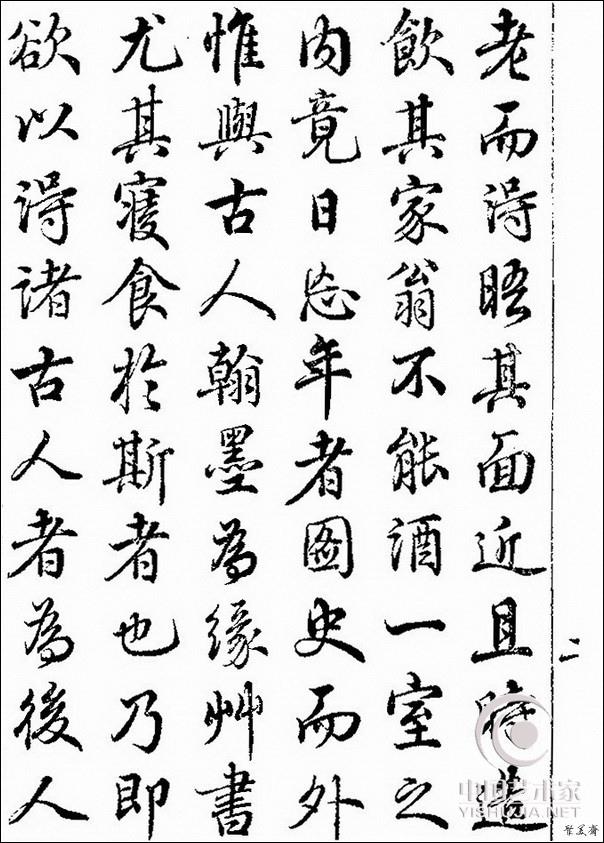 老而得晤其面近且時造
飲其家翁不能酒一室之
內竟日忘年者圖史而外
惟與古人翰墨為緣艸書
尤其寢食於斯者也乃即
欲以得諸古人者為後人
二
中国艺术家
YISHUJIA.NET